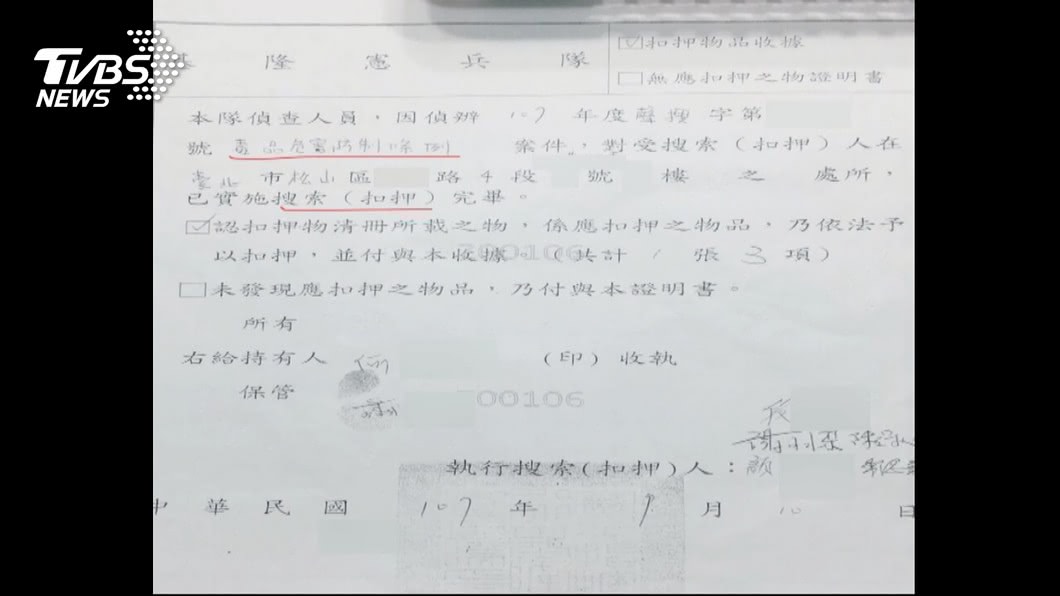 TVBS
NEWS
基隆憲兵隊
☑扣押物品收據
□無應扣押之物證明書
本隊偵查人員，因偵辦 107 年度聲搜字第
號 毒品危害防制條例 案件，對受搜索（扣押）人在
臺北市松山區 路4段 號 樓 之 處所，
已實施搜索（扣押）完畢。
☑認扣押物清冊所載之物，係應扣押之物品，乃依法予
以扣押，並付與本收據。（共計 1 張 3 項）
□未發現應扣押之物品，乃付與本證明書。
所有
右給持有人 （印）收執
保管
00106
執行搜索(扣押)人：顏
中華民國 107 年 9 月 10 日